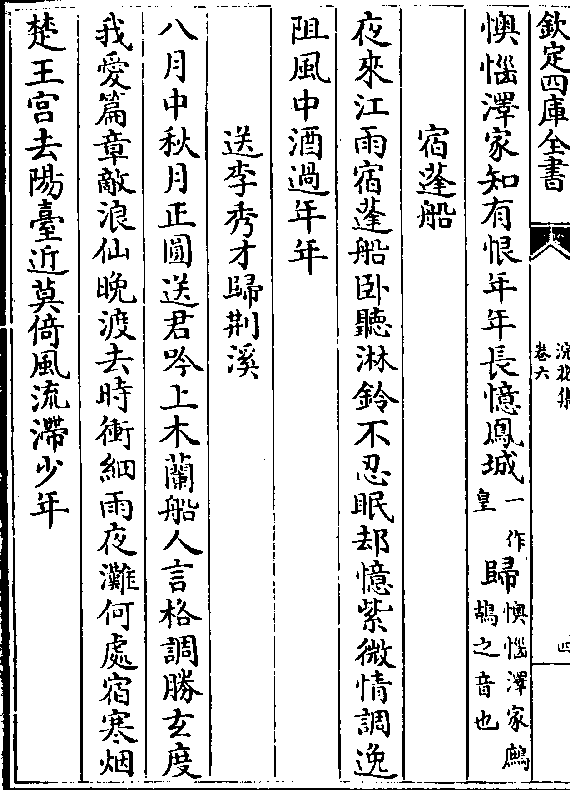 欽定四庫全書
浣花集
卷六
四
懊惱澤家知有恨年年長憶鳳城一作皇歸懊惱澤家鷓鴣之音也
宿蓬船
夜來江雨宿蓬船卧聽淋鈴不忍眠却憶紫微情調逸
阻風中酒過年年
送李秀才歸荆溪
八月中秋月正圓送君吟上木蘭船人言格調勝玄度
我愛篇章敵浪仙晚渡去時衝細雨夜灘何處宿寒烟
楚王宫去陽臺近莫倚風流滯少年